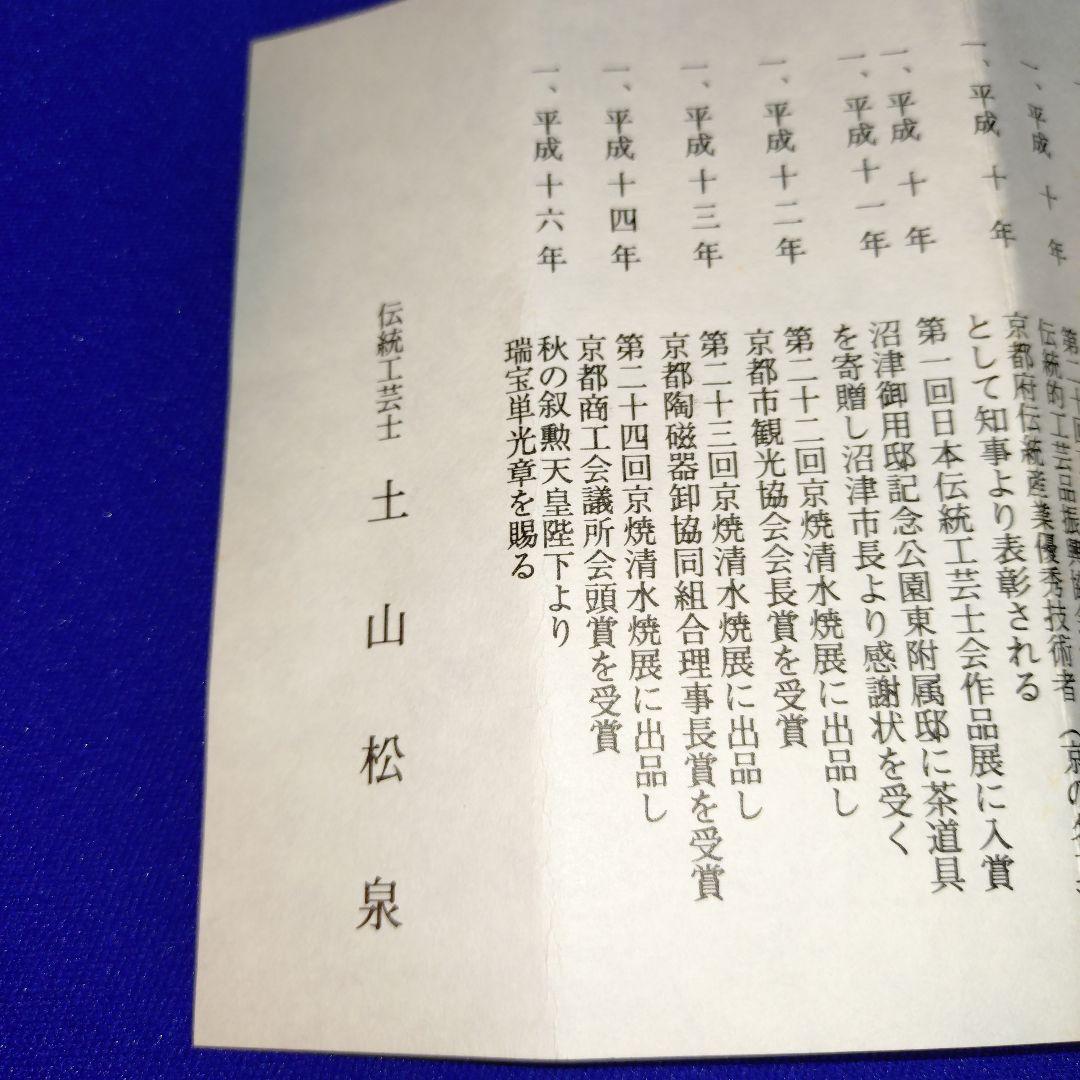 一、平成十年
伝統的工芸品振興
一、平成十年 京都府伝統産業優秀技術者（京の
として知事より表彰される
一、平成十年 第一回日本伝統工芸士会作品展に入賞
一、平成十一年 沼津御用邸記念公園東附属邸に茶道具
を寄贈し沼津市長より感謝状を受く
一、平成十二年 第二十二回京焼清水焼展に出品し
京都市観光協会会長賞を受賞
一、平成十三年 第二十三回京焼清水焼展に出品し
京都陶磁器卸協同組合理事長賞を受賞
一、平成十四年 第二十四回京焼清水焼展に出品し
京都商工会議所会頭賞を受賞
一、平成十六年 秋の叙勲天皇陛下より
瑞宝単光章を賜る
伝統工芸士 土山松泉